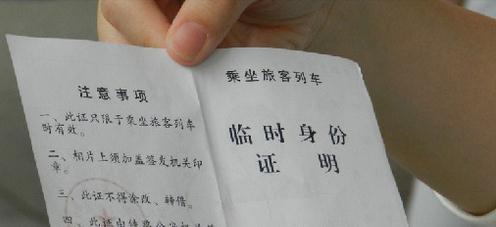 注意事项
一、此证只限于乘坐旅客列车
时有效。
二、相片上须加盖签发机关印
章。
三、此证不得涂改、转借。
四、此证由铁路公安机关
乘坐旅客列车
临时身份
证明